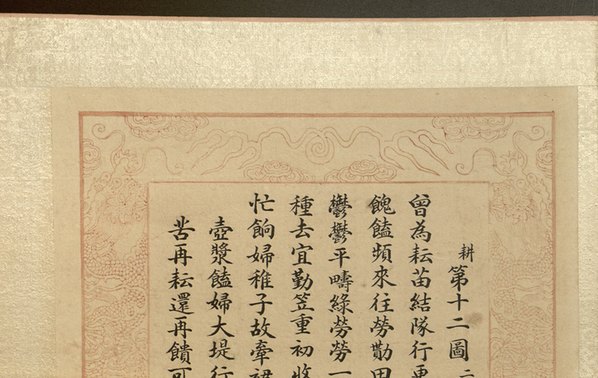 耕第十二圖二
曾為耘苗結隊行更
餽饁頻來往勞勩田
鬱鬱平疇綠勞勞一
種去宜勤笠重初收
忙餉婦稚子故牽裙
壺漿饁婦大堤行
苦再耘還再饋可